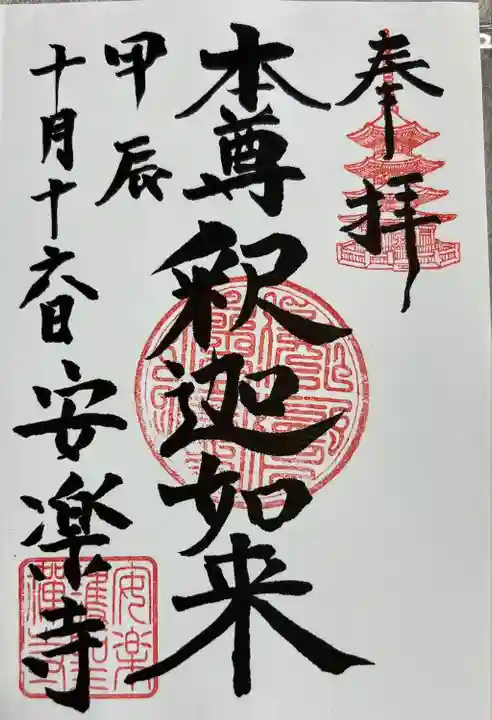 奉拝
本尊釈迦如来
甲辰
十月十六日 安楽寺